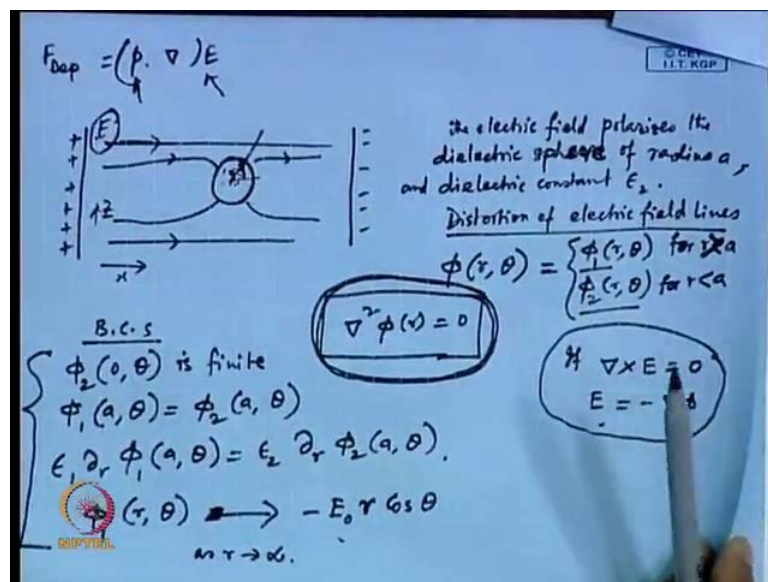 F_Dep = (p. ∇) E
© CET
I.I.T. KGP
E
Z
x
the electric field polarizes the
dielectric sphere of radius a,
and dielectric constant ε₂.
Distortion of electric field lines
φ(r, θ) = { φ₁(r, θ) for r>a
φ₂(r, θ) for r<a
∇² φ(r) = 0
B.C.S
φ₂(0, θ) is finite
φ₁(a, θ) = φ₂(a, θ)
ε₁ ∂r φ₁(a, θ) = ε₂ ∂r φ₂(a, θ).
(r, θ) → - E₀ r Cos θ
as r → ∞.
If ∇ × E = 0
E = -
NPTEL